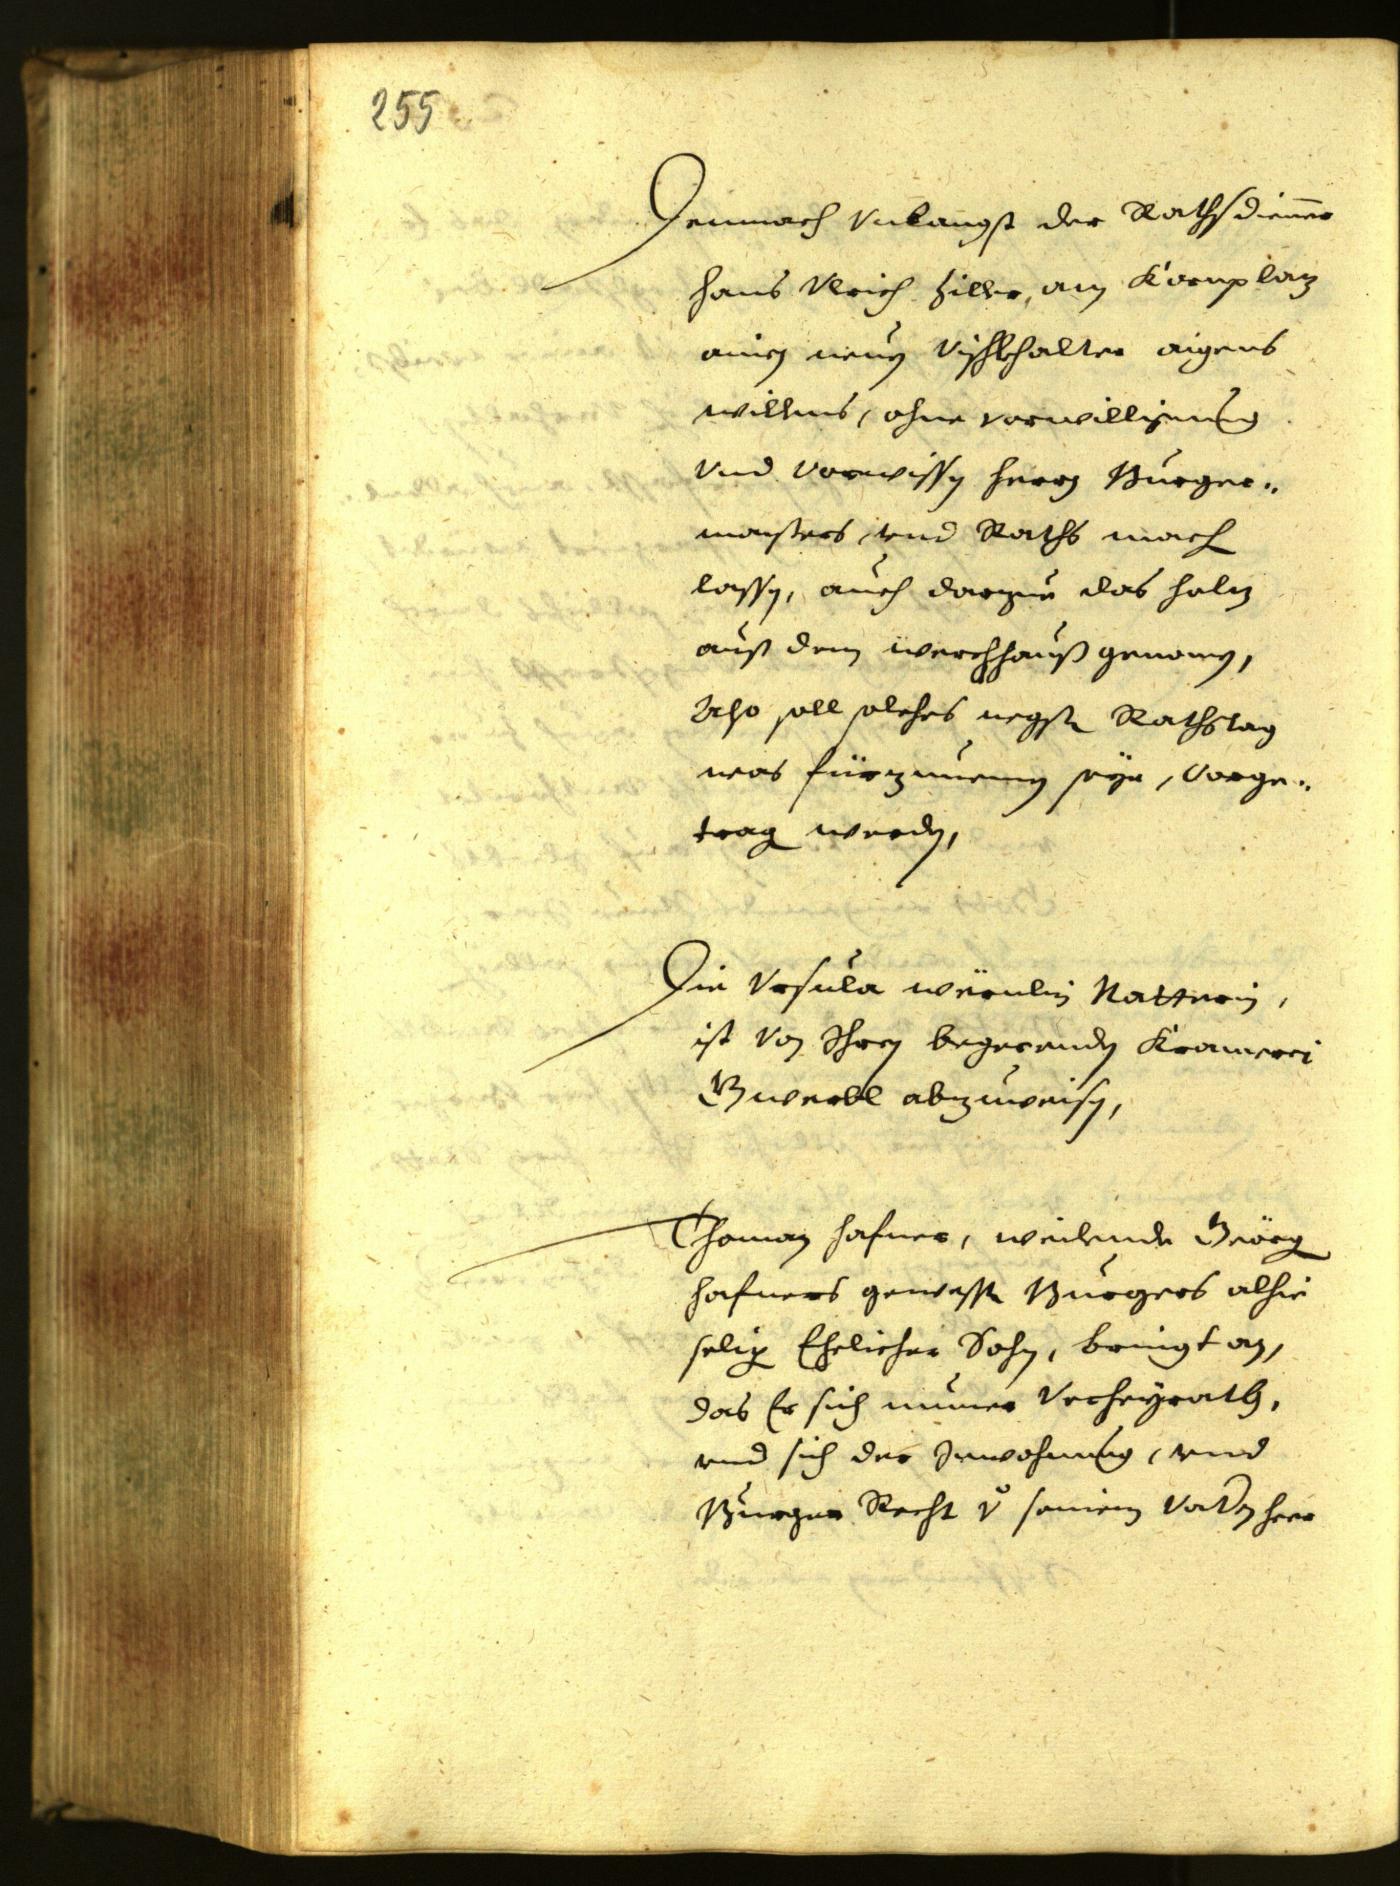 255
Demnach Vnlangst der Rathsdienner
Hans Vlrich Ziller, am Kornplaz
ainen neuen Vischbhalter aigens
willens, ohne vorwilligung
Vnd Vorwissen Herrn Burger=
maisters vnd Raths mach
lassen, auch darzue das holz
auß dem werchhauß genomen,
Also soll solches negste Rathstag
was fürzunemen seye, Vorge=
trag werden,
Die Vrsula Natterin,
ist Von Ihren begerenden Kramerei
Gwerbl abzuweisen,
Thoman Hafner, weilende Geörg
Hafners gewesten Burgers alhie
selig Ehelicher Sohn, bringt an,
das Er sich nuner Verheyrath,
vnd sich der Inwohnung, vnd
Burger Recht v seinem Vattern herr